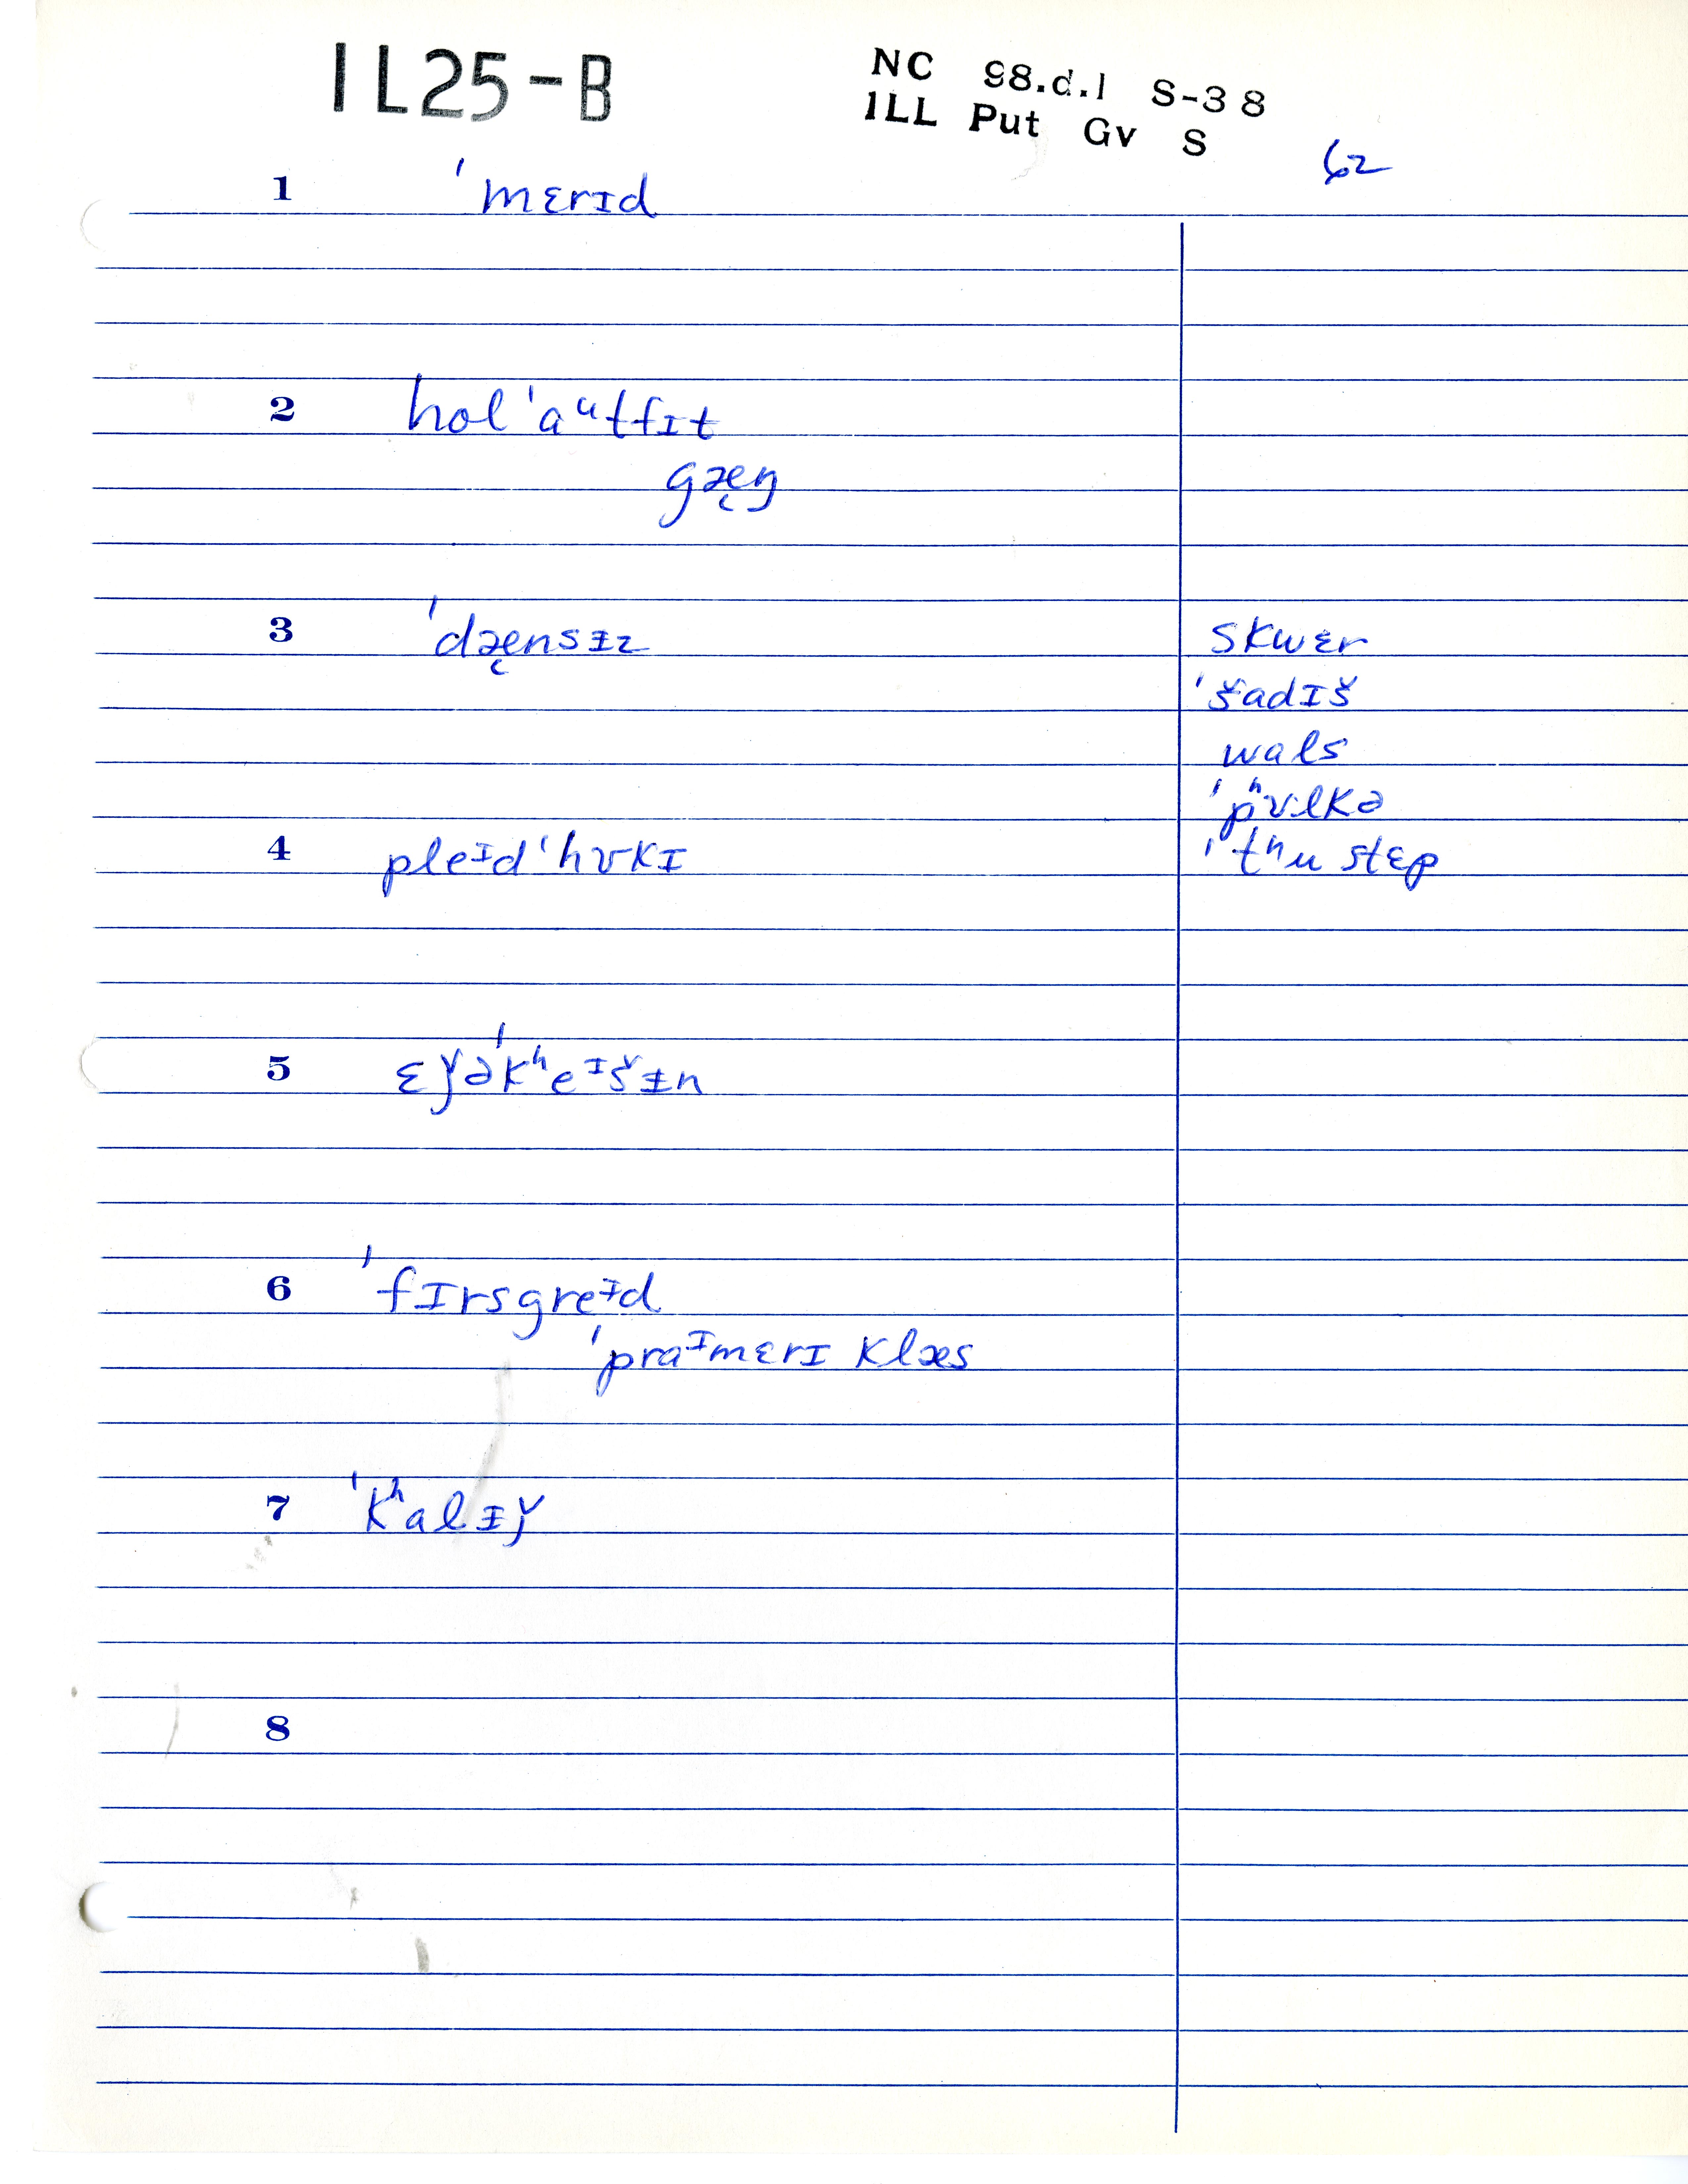 IL25-B
NC 98.d.1 S-38
ILL Put Gv S
62
1 ˈmɛrɪd
2 hol ˈaᵘtfɪt
gæ̨ŋ
3 ˈdæ̨nsɪ̵z
skwɛr
ˈšadɪš
wals
ˈpʰʊlkə
4 pleᶦd ˈhʊkɪ
ˈtʰu stɛp
5 ɛǰəˈkʰeᶦšɪ̵n
6 ˈfɪrsgreᶦd
ˈpraᶦmɛrɪ klæs
7 ˈkʰalɪ̵ǰ
8